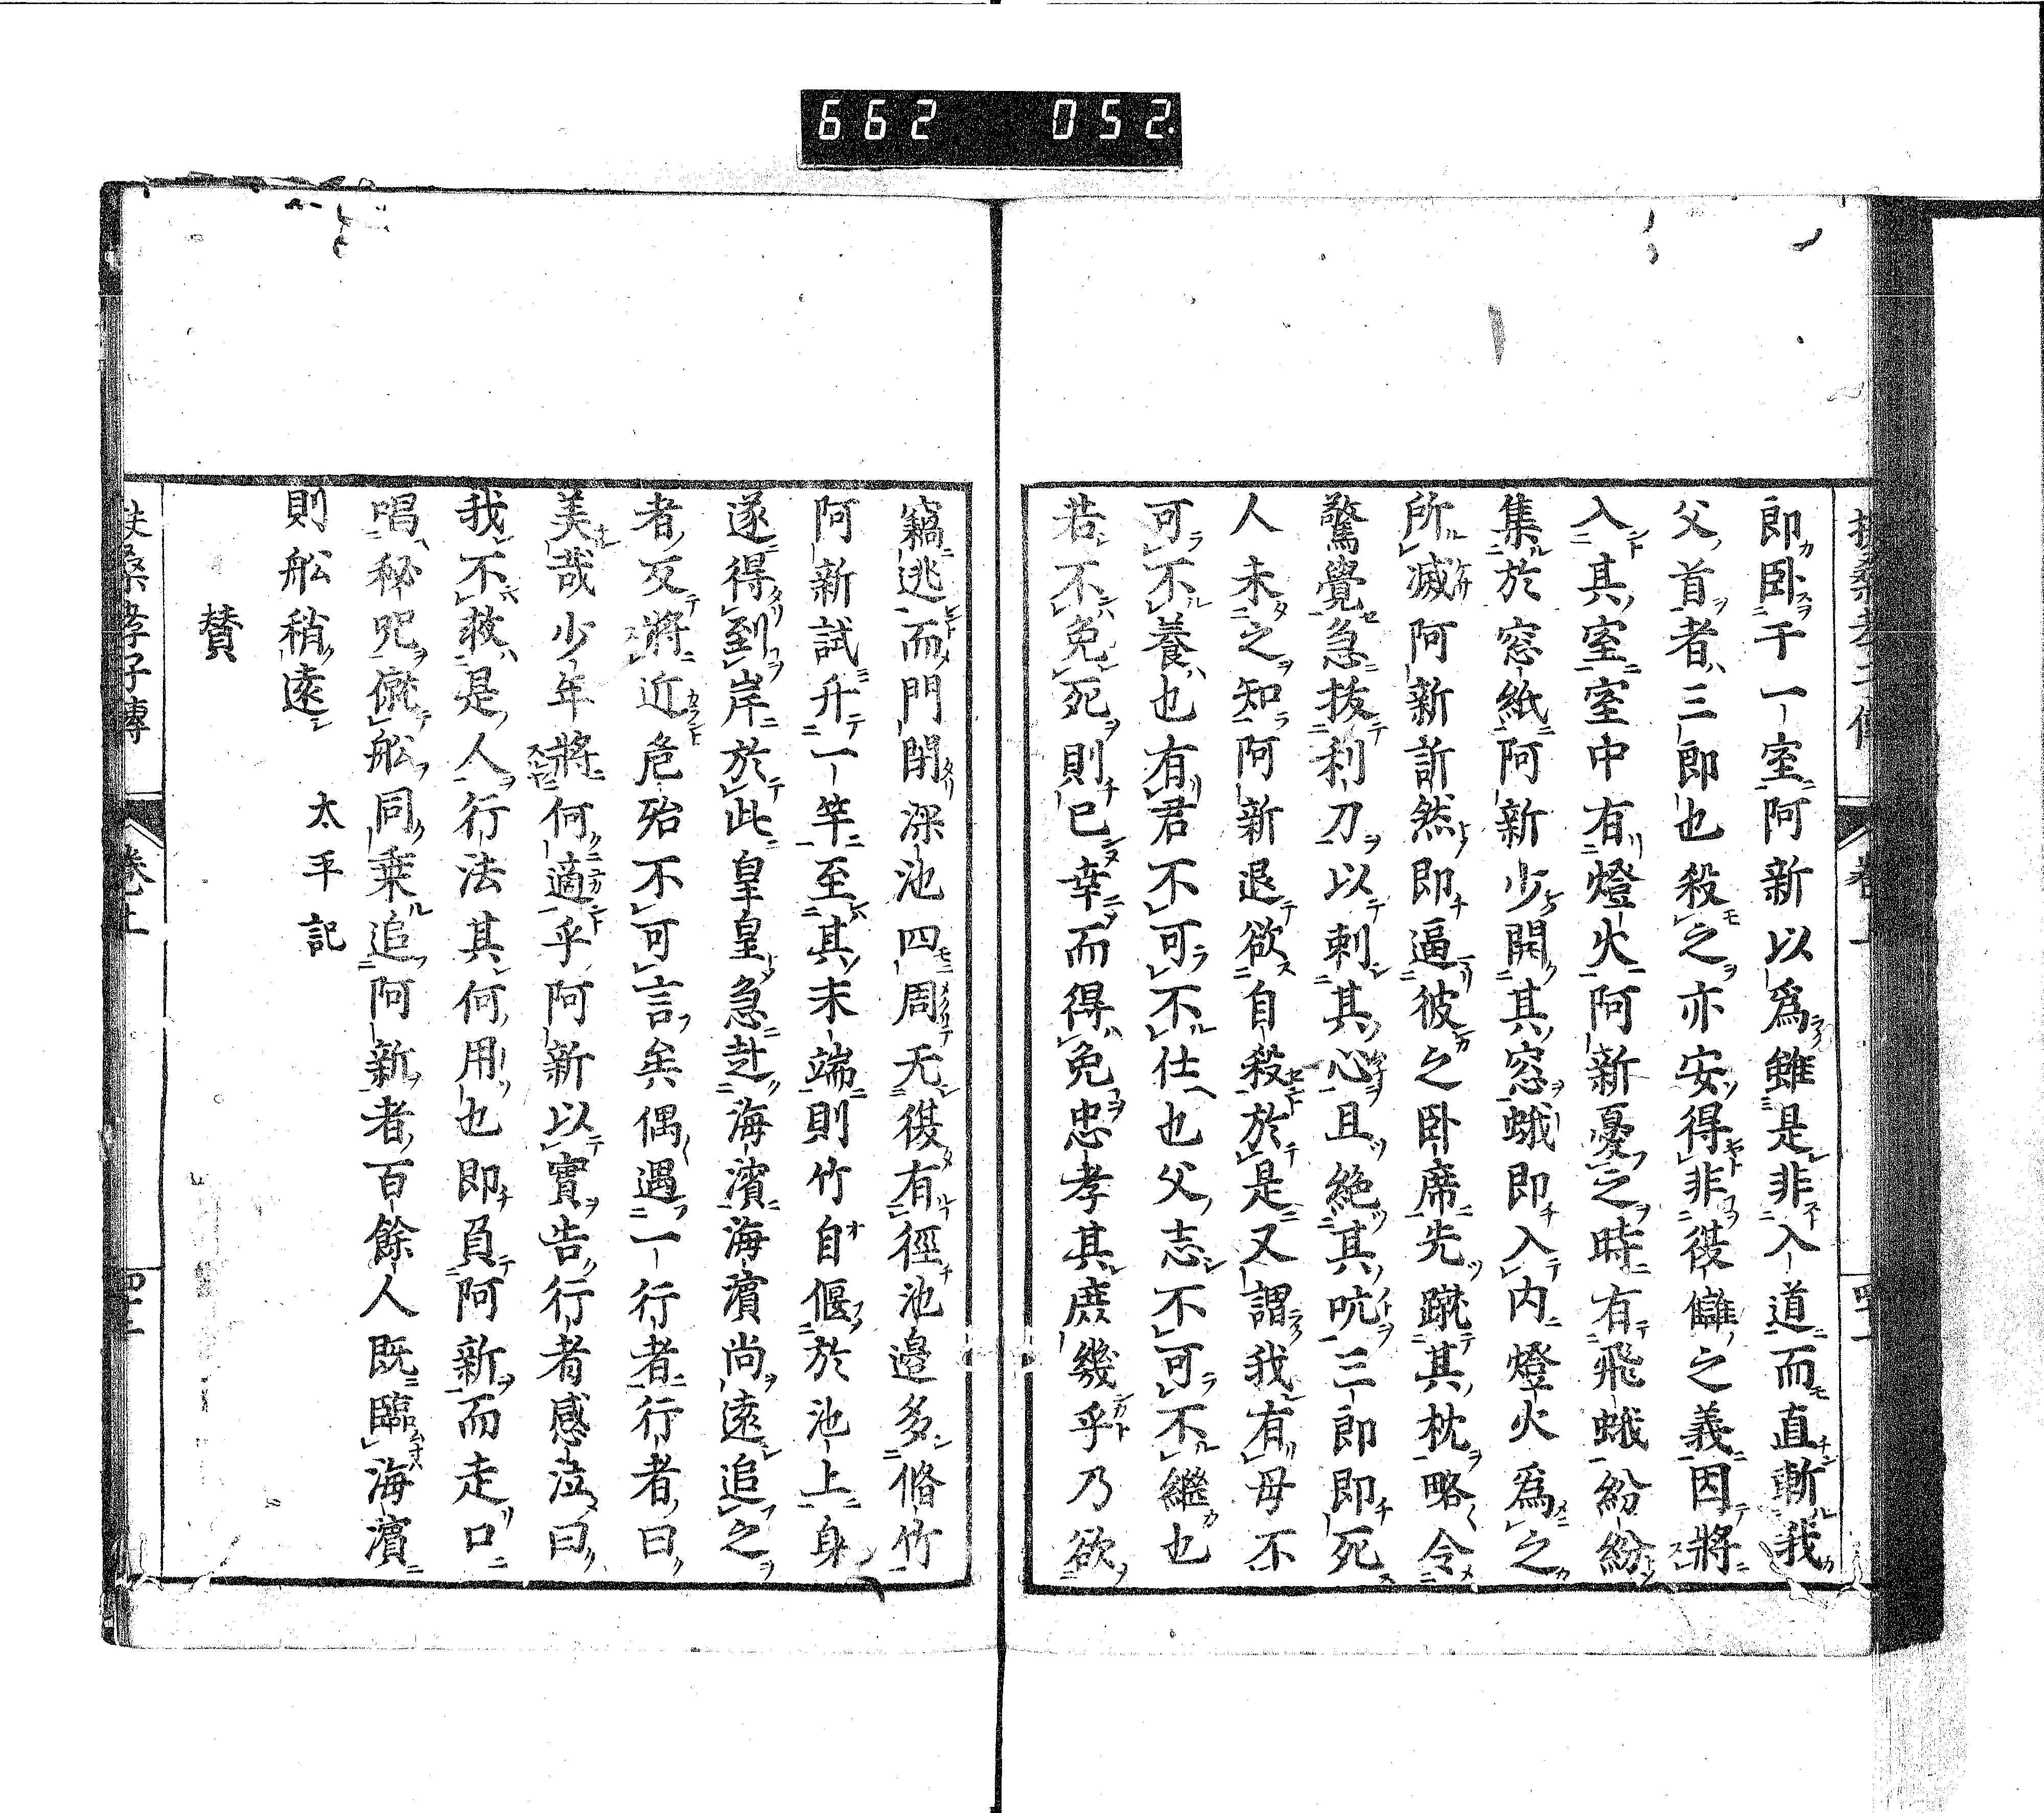 662 052
即臥于一室阿新以爲雖是非入道而直斬我
父首者三郎也殺之亦安得非從讎之義因將
入其室室中有燈火阿新憂之時有飛蛾紛紛
集於窓紙阿新少開其窓蛾即入内燈火爲之
所滅阿新訢然即逼彼之臥席先蹴其枕略令
驚覺急拔利刀以刺其心且絶其吭三郎即死
人未之知阿新退欲自殺於是又謂我有母不
可不養也有君不可不仕也父志不可不繼也
若不免死則已幸而得免忠孝其庶幾乎乃欲
竊逃而門閉深池四周无復有徑池邊多脩竹
阿新試升一竿至其末端則竹自偃於池上身
遂得到岸於此皇皇急赴海濱海濱尚遠追之
者又將近危殆不可言矣偶遇一行者行者曰
美哉少年將何適乎阿新以實告行者感泣曰
我不救是人行法其何用也即負阿新而走口
唱秘呪僦舩同乗追阿新者百餘人既臨海濱
則舩稍遠 太平記
賛
扶桑孝子傳 卷上